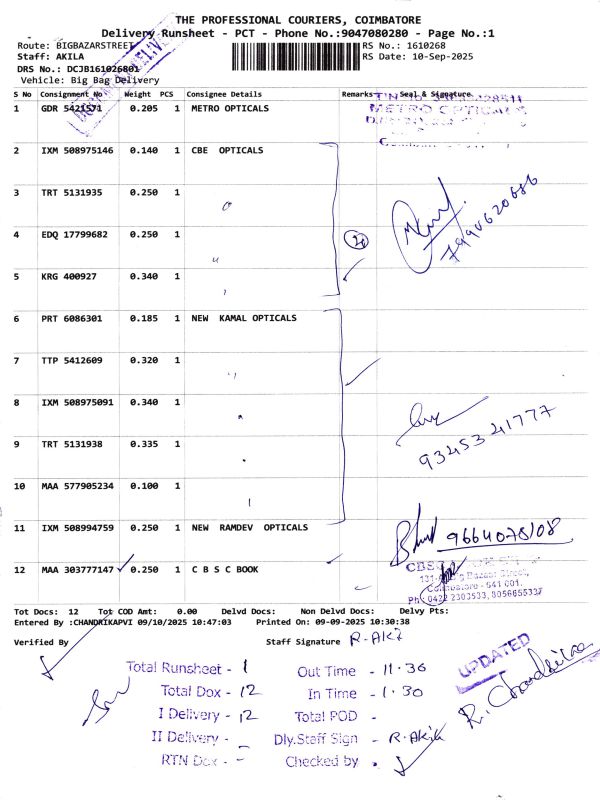 THE PROFESSIONAL COURIERS, COIMBATORE
Delivery Runsheet - PCT - Phone No.:9047080280 - Page No.:1
Route: BIGBAZARSTREET
RS No.: 1610268
Staff: AKILA
RS Date: 10-Sep-2025
DRS No.: DCJB161026801
Vehicle: Big Bag Delivery
S No Consignment No Weight PCS Consignee Details Remarks Seal & Signature
1 GDR 5421571 0.205 1 METRO OPTICALS
METRO OPTICALS
2 IXM 508975146 0.140 1 CBE OPTICALS
3 TRT 5131935 0.250 1
4 EDQ 17799682 0.250 1 "
7990620686
5 KRG 400927 0.340 1
6 PRT 6086301 0.185 1 NEW KAMAL OPTICALS
7 TTP 5412609 0.320 1 "
8 IXM 508975091 0.340 1
9 TRT 5131938 0.335 1
93453 41777
10 MAA 577905234 0.100 1
11 IXM 508994759 0.250 1 NEW RAMDEV OPTICALS
9664078108
12 MAA 303777147 0.250 1 C B S C BOOK
CBSC
Bazaar Street,
Coimbatore - 641 001.
Ph: 0422 2303533, 8056655337
Tot Docs: 12 Tot COD Amt: 0.00 Delvd Docs: Non Delvd Docs: Delvy Pts:
Entered By :CHANDRIKAPVI 09/10/2025 10:47:03 Printed On: 09-09-2025 10:30:38
Verified By Staff Signature
UPDATED
Total Runsheet - 1 Out Time - 11.36
Total Dox - 12 In Time - 1.30
I Delivery - 12 Total POD -
II Delivery - Dly.Staff Sign - R.Akila
RTN Dox - - Checked by